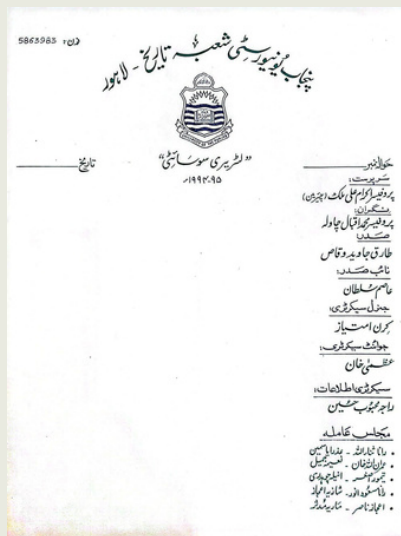 پنجاب یونیورسٹی شعبہ تاریخ - لاہور
فون: 5863983
"لٹریری سوسائٹی"
۱۹۹۴-۹۵ء
حوالہ نمبر
تاریخ
سرپرست:
پروفیسر اکرام علی ملک (چیئرمین)
نگران:
پروفیسر محمد اقبال چاولہ
صدر:
طارق جاوید وقاص
نائب صدر:
عاصم سلطان
جنرل سیکرٹری:
کرن امتیاز
جوائنٹ سیکرٹری:
عظمیٰ خان
سیکرٹری اطلاعات:
راجہ محبوب حسین
مجلس عاملہ
رانا ثناء اللہ - عذرا یاسمین
عمران اللہ خان - نصیر جمیل
تیمور اصغر - انیلہ چوہدری
رانا مسعود انور - شازیہ اعجاز
اعجاز ناصر - ماریہ مدثر